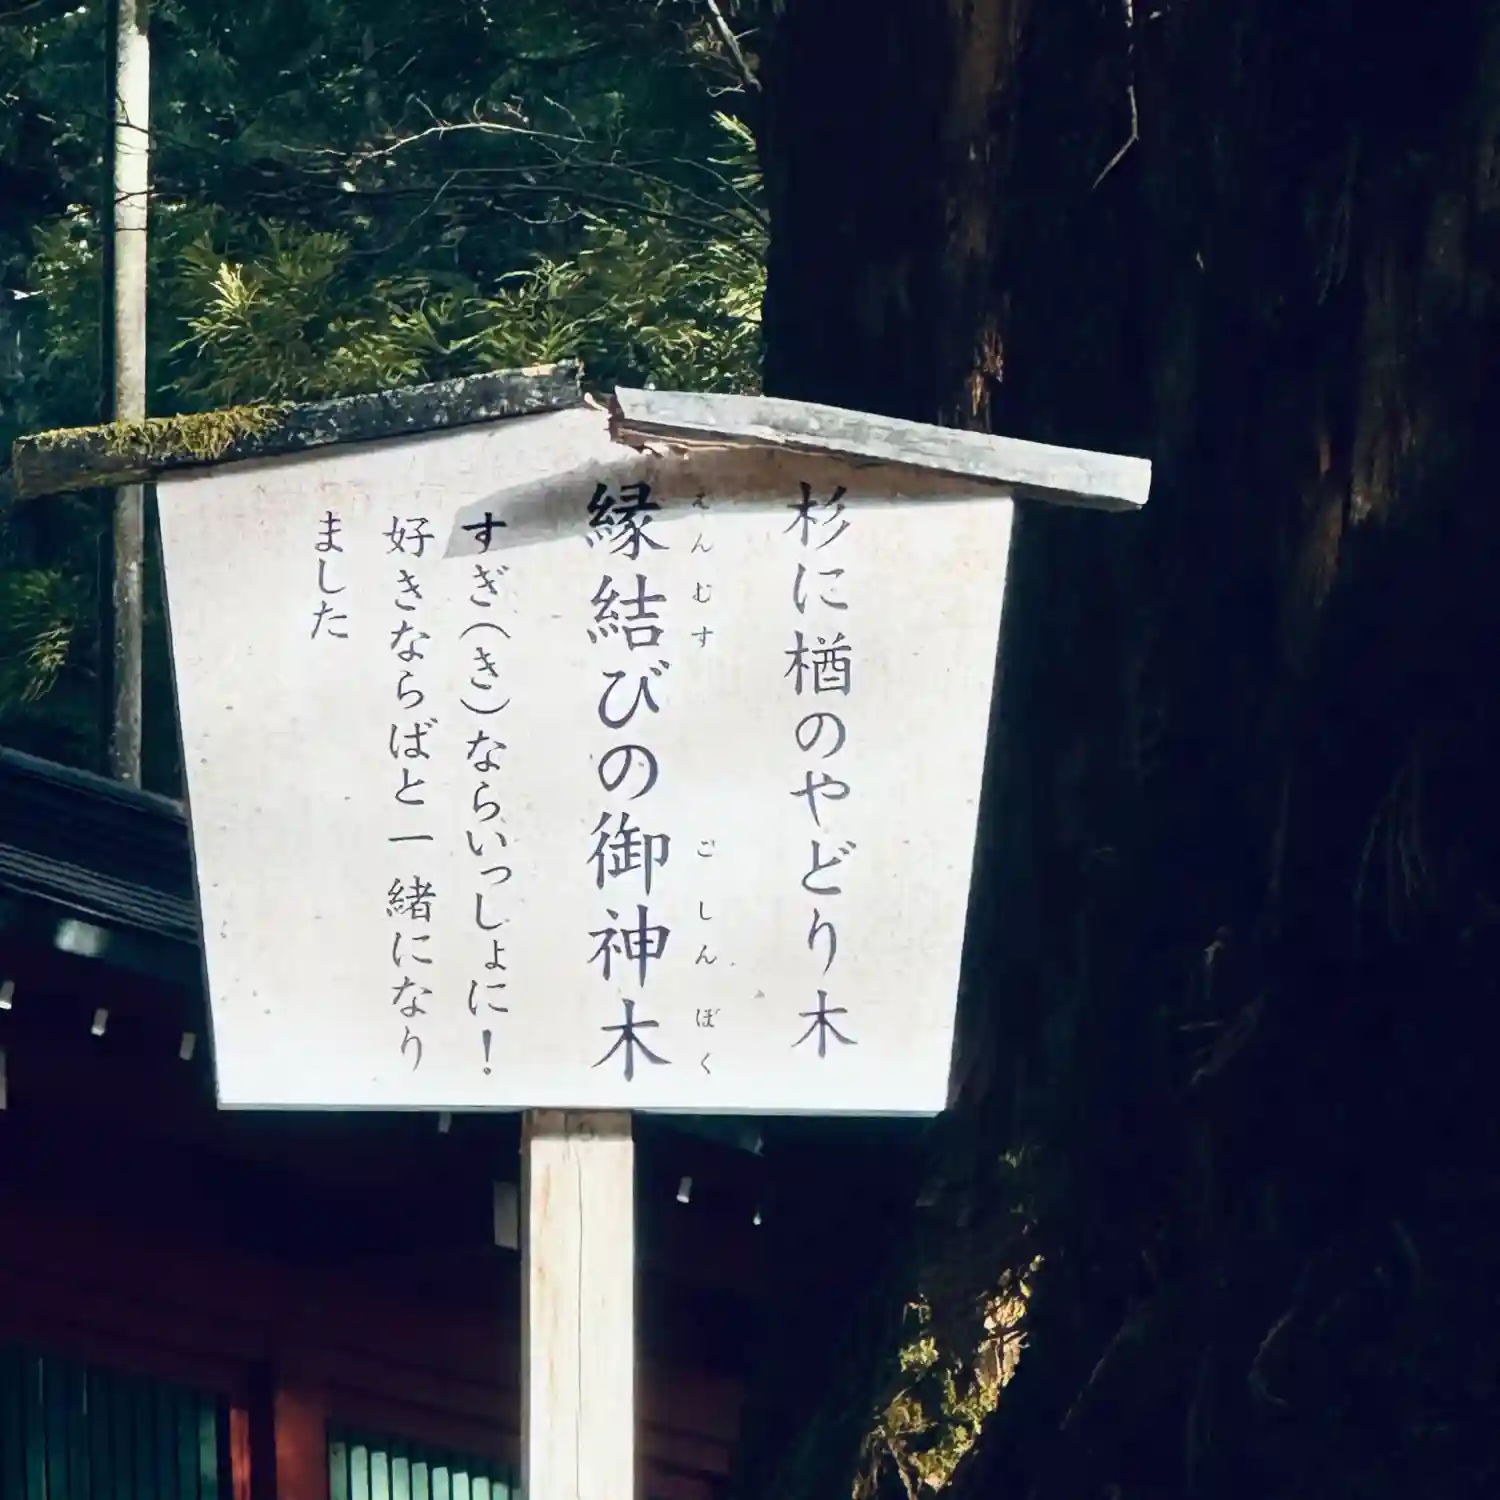 杉に楢のやどり木
えんむす ごしんぼく
縁結びの御神木
すぎ(き)ならいっしょに!
好きならばと一緒になり
ました